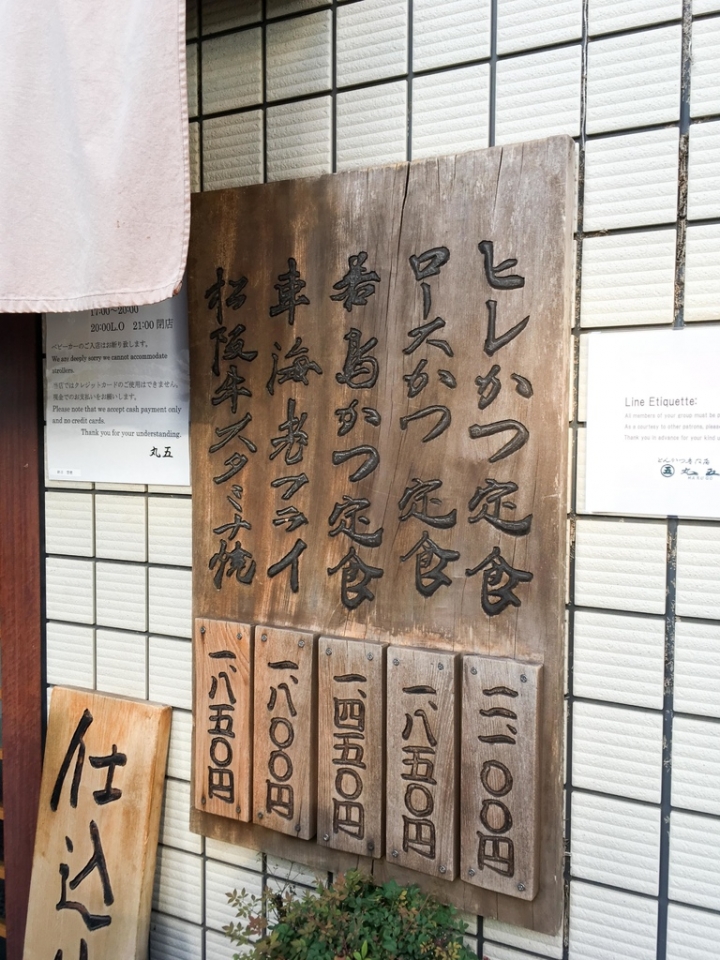 ヒレかつ定食
ロースかつ定食
若鳥かつ定食
車海老フライ
松阪牛スタミナ焼
二、一〇〇円
一、八五〇円
一、四五〇円
一、八〇〇円
一、八五〇円
17:00~20:00
20:00L.O 21:00閉店
ベビーカーのご入店はお断り致します。
We are deeply sorry we cannot acommodate
strollers.
当店ではクレジットカードのご使用はできません。
現金でのお支払いをお願い致します。
Please note that we accept cash payment only
and no credit cards.
Thank you for your understanding.
丸五
仕込
Line Etiquette:
All members of your group must be
As a courtesy to other patrons,
Thank you in advance for your kind
とんかつ専門店
丸五